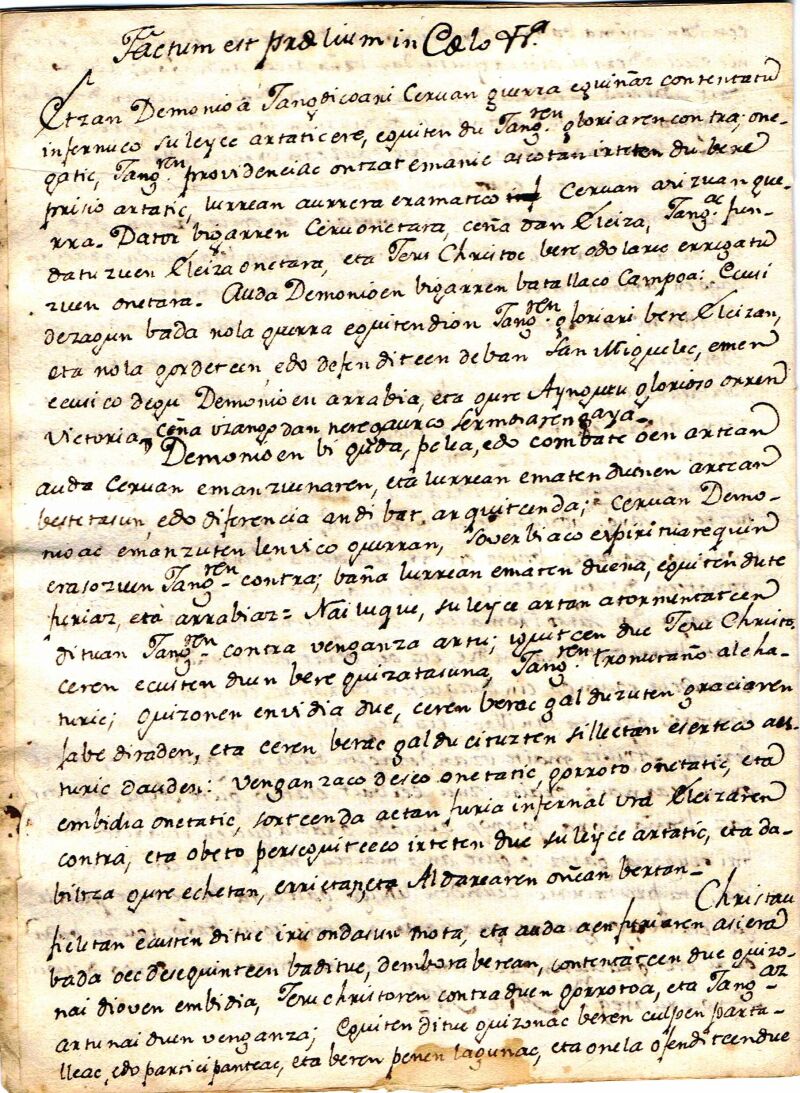 Factum est prælium in Cælo &ª.
Etzan Demonioa Tangdicoari Ceruan guerra eguiñaz contentatu
infernuco suleyce artaticere, eguiten du Tang.ren gloriaren contra; one-
gatic, Tang.ren providenciac ontzat emanic ascotan irteten du bere
prisio artatic, lurrean aurrera eramatico Ceruan asi zuan gue-
rra. Dator bigarren Ceru onetara, ceña dan Eleiza, Tang.ac fun-
datu zuen Eleiza onetara, eta Jesu Christoc bere odolarie errigatu
zuen onetara. Auda Demonioen bigarren batallaco Campoa: Ecusi
dezagun bada nola guerra eguitendion Tang.ren gloriari bere Eleizan,
eta nola gordeteen, edo defenditeen deban San Miguelec, emen
ecusico degu Demonioen arrabia, eta gure Aynguru glorioso orren
Victoria, ceña izango dan nere gaurco sermoiaren gaya.
Demonioen bi guda, pelea, edo combate oen artean
auda Ceruan eman zuenaren, eta lurrean ematen duenen artean
bestetasun, edo diferencia andi bat arquitcenda; Ceruan Demo-
nioac eman zuten lenvico guerran, soverbiaco espirituarequin
eraso zuen Tang.ren contra; baña lurrean ematen duena, eguiten dute
furiaz, eta arrabiaz = Nai luque, suleyce artan atormentatcen
dituan Tang.ren contra venganza artu; iguitcen due Jesu Christo,
ceren ecusten duen bere guizatasuna, Tang.ren tronuraño alcha-
turic; guizonen envidia due, ceren berac galdu zuten graciaren
jabe diraden, eta ceren berac galdu cituzten sillectan eserteco aes-
turic dauden: venganzaco deseo onetatic, gorroto onetatic, eta
embidia onetatic, sortcenda aetan furia infernal ura Eleizaren
contra, eta obeto perseguitceco irteten due suleyce artatic, eta da-
biltza gure echetan, errietan, eta Aldarearen oñean bertan.
Christau
fieletan ecusten ditue iru ondasun mota, eta auda aen furiaren asiera
bada oec desequinteen baditue, dembora berean, contentatcen due guizo-
nai dioven embidia, Jesu christoren contra duen gorrotoa, eta Tang.az
artu nai duen venganza; Eguiten ditue guizonac beren culpen parta-
lleac, edo participanteac, eta beren penen lagunac, eta onela ofenditcendue